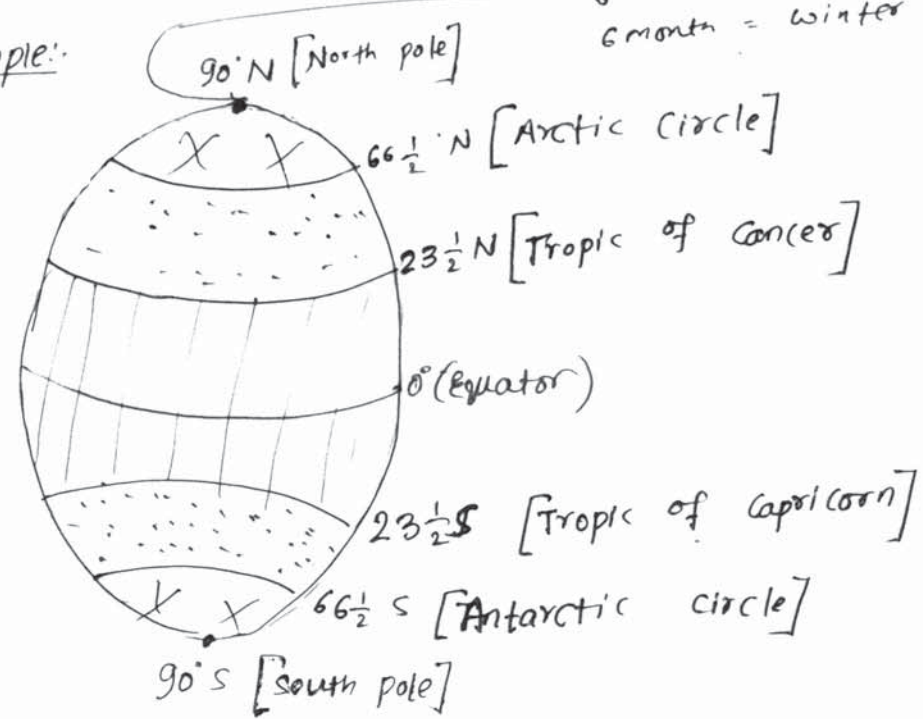 6 month = winter
ple:-
90°N [North pole]
66 1/2 °N [Arctic Circle]
23 1/2 N [Tropic of Cancer]
0° (Equator)
23 1/2 S [Tropic of Capricorn]
66 1/2 S [Antarctic circle]
90°S [South pole]